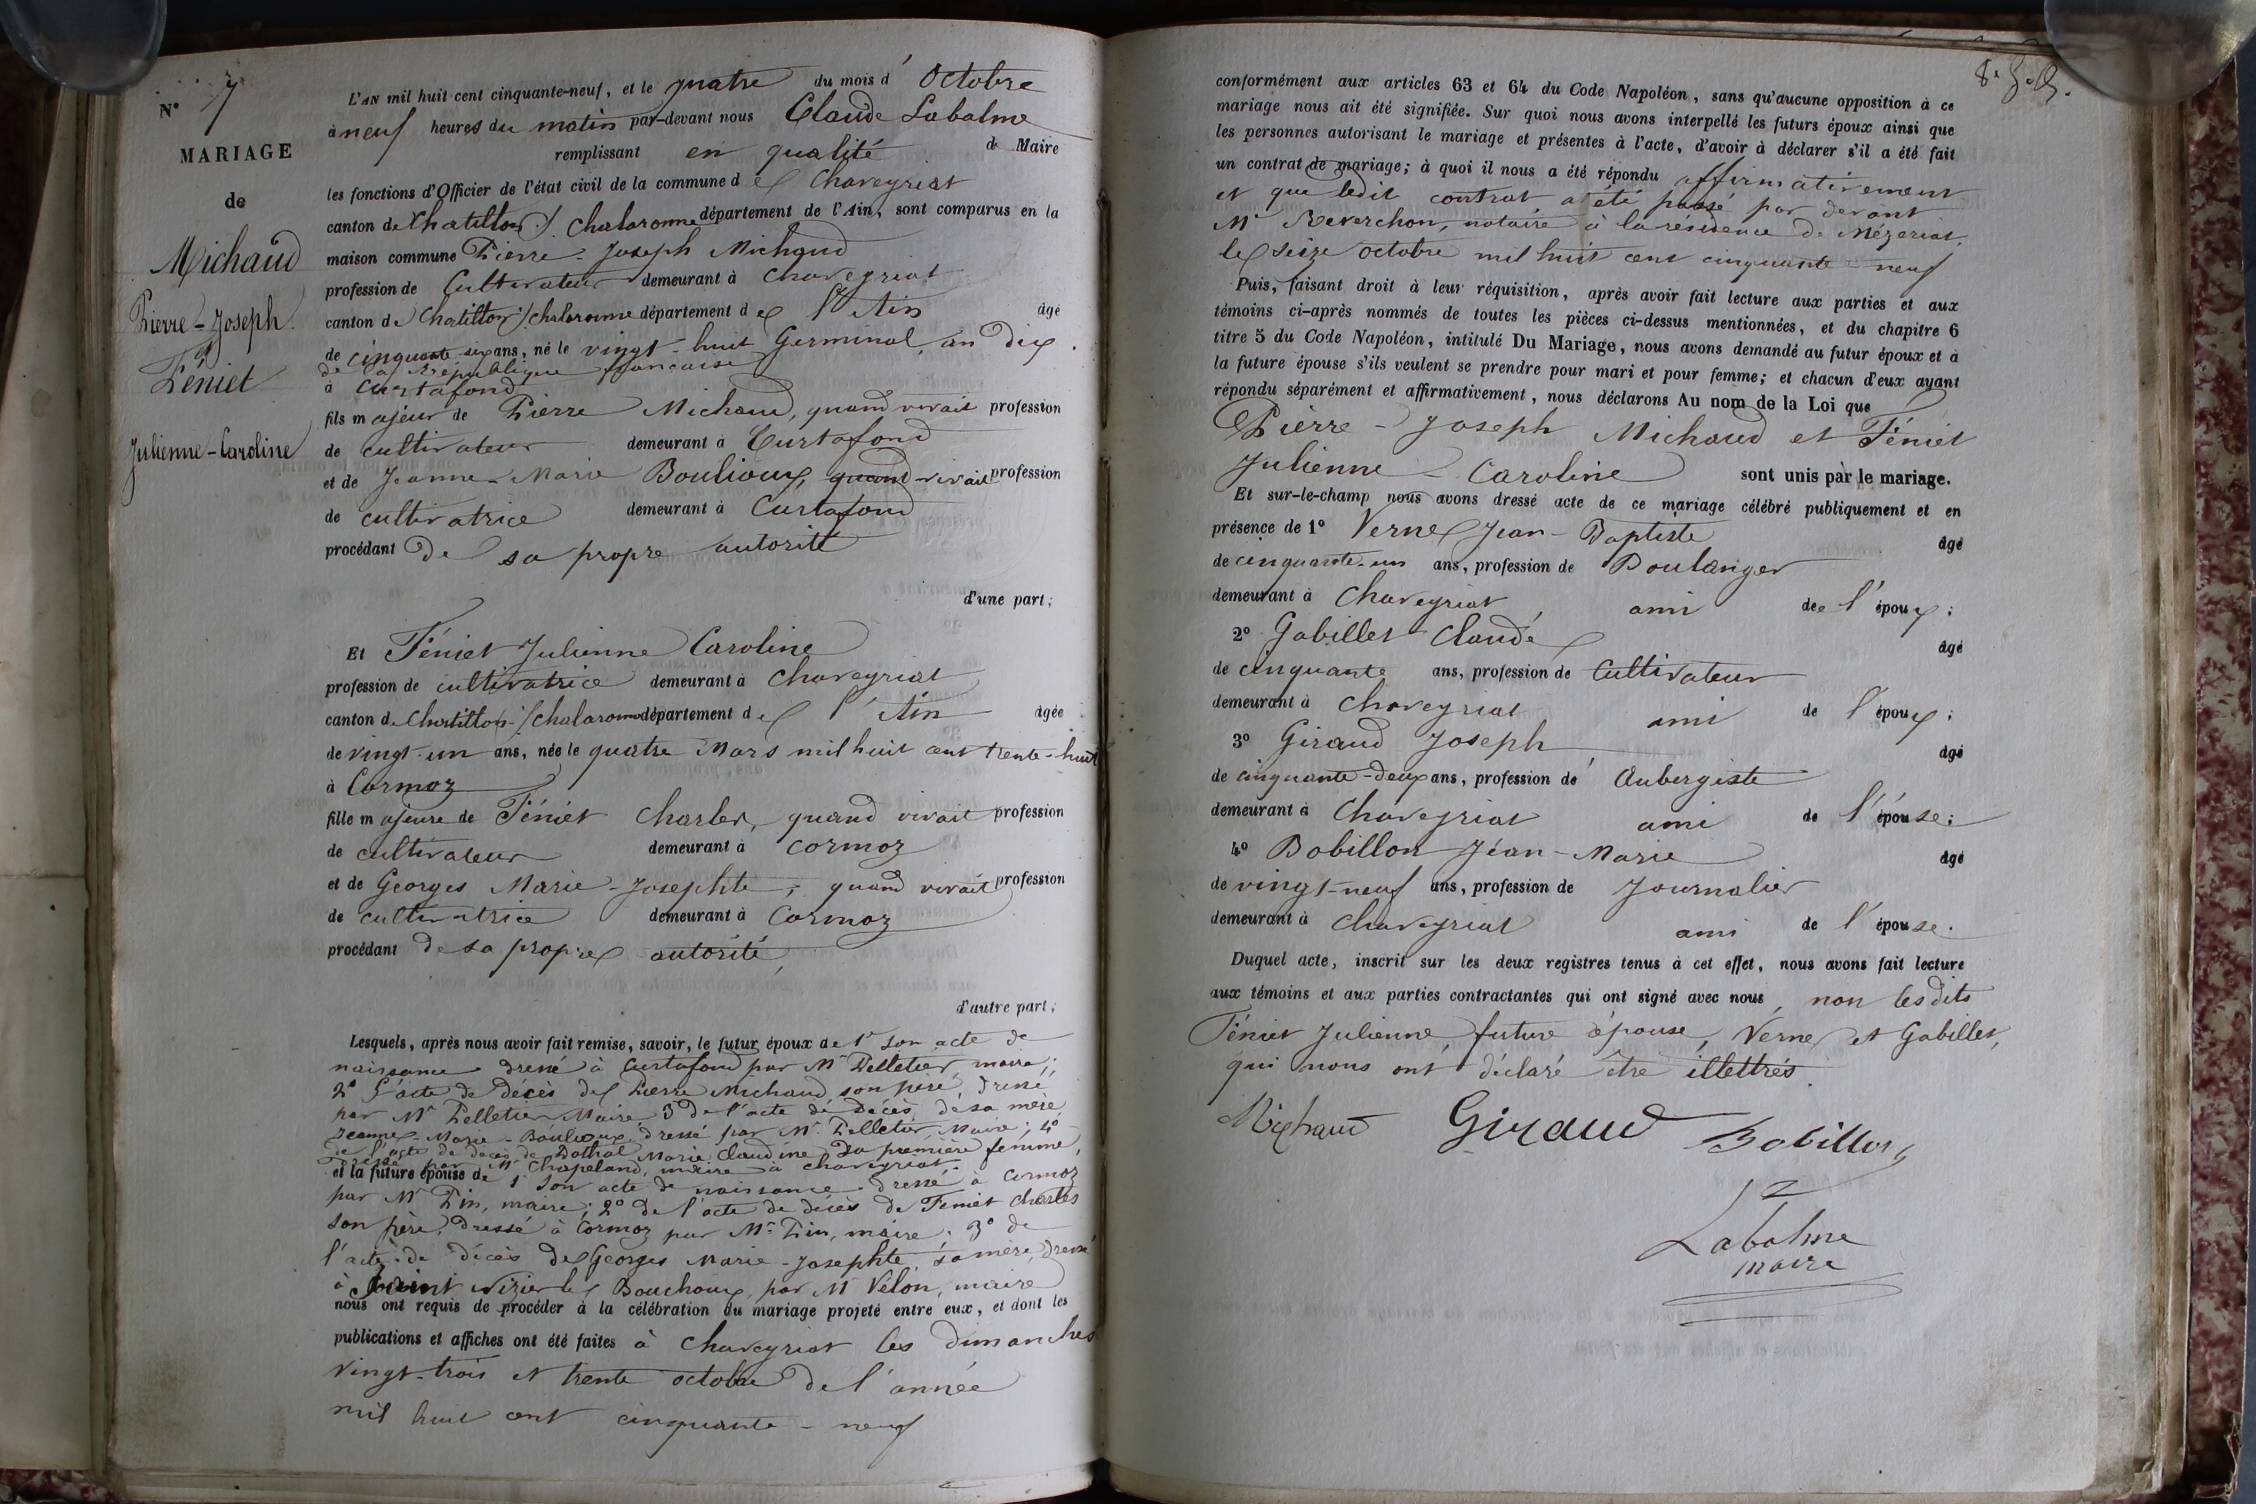 N° 7
MARIAGE
de
Michaud
Pierre-Joseph
&
Féniet
Julienne-Caroline
L'AN mil huit cent cinquante-neuf, et le quatre du mois d' Octobre
à neuf heures du matin par-devant nous Claude Labalme
remplissant en qualité de Maire
les fonctions d'Officier de l'état civil de la commune de Chaveyriat
canton de Chatillon s/ Chalaronne département de l'Ain, sont comparus en la
maison commune Pierre-Joseph Michaud
profession de Cultivateur demeurant à Chaveyriat
canton de Chatillon s/ chalaronne département de l'Ain âgé
de cinquante-sept ans, né le vingt-huit Germinal, an dix
de la République française
à Curtafond
fils majeur de Pierre Michaud, quand vivait profession
de cultivateur demeurant à Curtafond
et de Jeanne-Marie Boulioux, quand vivait profession
de cultivatrice demeurant à Curtafond
procédant de sa propre autorité
d'une part;
Et Féniet Julienne Caroline
profession de cultivatrice demeurant à Chaveyriat
canton de Chatillon-s/chalaronne département de l'Ain âgée
de vingt-un ans, née le quatre Mars mil huit cent trente-huit
à Cormoz
fille majeure de Féniet Charles, quand vivait profession
de cultivateur demeurant à Cormoz
et de Georges Marie-Josephte, quand vivait profession
de cultivatrice demeurant à Cormoz
procédant de sa propre autorité,
d'autre part;
Lesquels, après nous avoir fait remise, savoir, le futur époux de 1° son acte de
naissance dressé à Curtafond par Mr Pelletier, maire;
2° L'acte de décès de Pierre Michaud, son père, dressé
par Mr Pelletier Maire, 3° de l'acte de décès de sa mère
Jeanne-Marie-Boulioux dressé par Mr Pelletier Maire; 4°
de l'acte de décès de Marie Claudine sa première femme,
dressé par Mr Chapeland, maire à chaveyriat.
et la future épouse de 1° son acte de naissance dressé à Cormoz
par Mr Pin, maire; 2° de l'acte de décès de Feniet Charles
son père, dressé à Cormoz par Mr Pin, maire; 3° de
l'acte de décès de Georges Marie-Josephte, sa mère, dressé
à Saint Nizier le Bouchoux, par Mr Velon, maire
nous ont requis de procéder à la célébration du mariage projeté entre eux, et dont les
publications et affiches ont été faites à Chaveyriat les dimanches
vingt-trois et trente octobre de l'année
mil huit cent cinquante-neuf
conformément aux articles 63 et 64 du Code Napoléon, sans qu'aucune opposition à ce
mariage nous ait été signifiée. Sur quoi nous avons interpellé les futurs époux ainsi que
les personnes autorisant le mariage et présentes à l'acte, d'avoir à déclarer s'il a été fait
un contrat de mariage; à quoi il nous a été répondu affirmativement
et que ledit contrat a été passé par devant
Mr Reverchon, notaire à la résidence de Mézeriat,
le seize octobre mil huit cent cinquante-neuf
Puis, faisant droit à leur réquisition, après avoir fait lecture aux parties et aux
témoins ci-après nommés de toutes les pièces ci-dessus mentionnées, et du chapitre 6
titre 5 du Code Napoléon, intitulé Du Mariage, nous avons demandé au futur époux et à
la future épouse s'ils veulent se prendre pour mari et pour femme; et chacun d'eux ayant
répondu séparément et affirmativement, nous déclarons Au nom de la Loi que
Pierre-Joseph Michaud et Féniet
Julienne-Caroline sont unis par le mariage.
Et sur-le-champ nous avons dressé acte de ce mariage célébré publiquement et en
présence de 1° Verne Jean-Baptiste âgé
de cinquante-un ans, profession de Boulanger
demeurant à Chaveyriat, ami de l'époux;
2° Gabillet Claude âgé
de cinquante ans, profession de Cultivateur
demeurant à Chaveyriat ami de l'époux;
3° Giraud Joseph âgé
de cinquante-deux ans, profession d' Aubergiste
demeurant à Chaveyriat ami de l'épouse;
4° Bobillon Jean-Marie âgé
de vingt-neuf ans, profession de Journalier
demeurant à Chaveyriat ami de l'épouse.
Duquel acte, inscrit sur les deux registres tenus à cet effet, nous avons fait lecture
aux témoins et aux parties contractantes qui ont signé avec nous, non lesdits
Féniet Julienne, future épouse, Verne et Gabillet,
qui nous ont déclaré être illettrés.
Michaud Giraud Bobillon
Labalme
maire